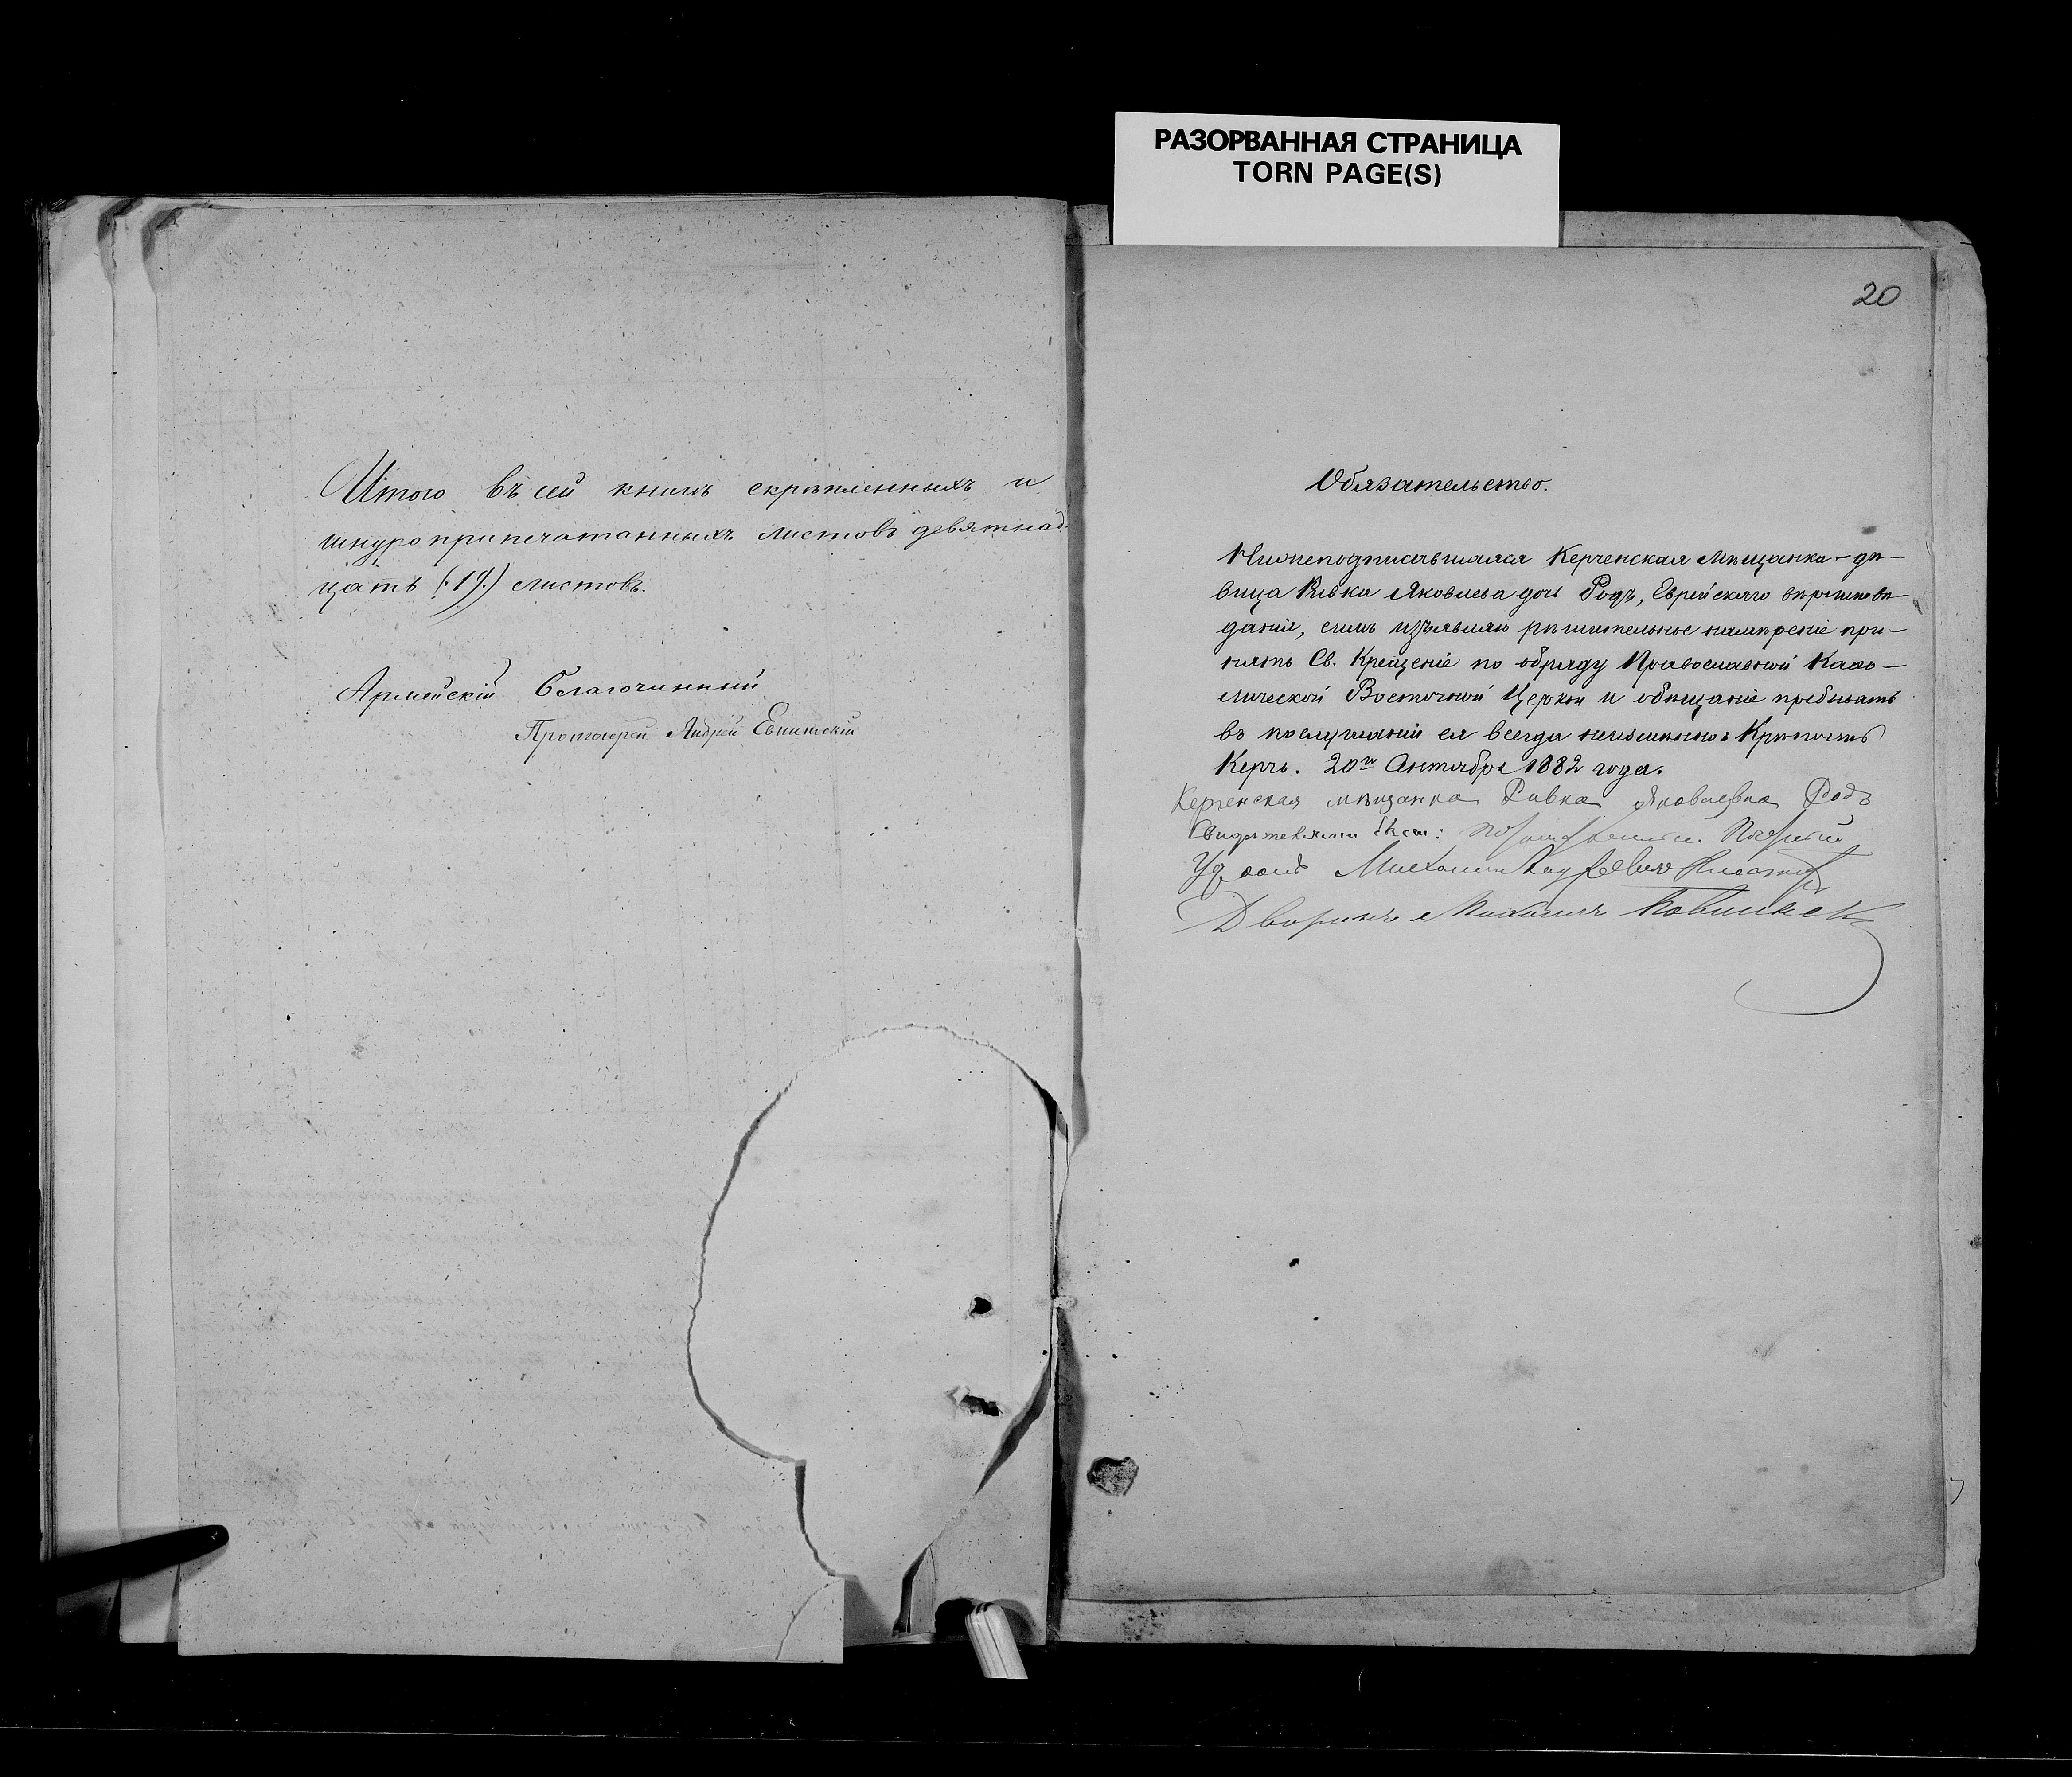 РАЗОРВАННАЯ СТРАНИЦА
TORN PAGE(S)
Итого въ сей книгѣ скрѣпленныхъ и
шнуроприпечатанныхъ листовъ девятнад-
цать (19) листовъ.
Армейскій Благочинный
Протоіерей Андрей
20
Обязательство.
Нижеподписавшаяся Керченская мѣщанка - дѣ-
вица Ривка Яковлева дочь Родъ, Еврейскаго вѣроисповѣ-
данія, симъ изъявляю рѣшительное намѣреніе при-
нять Св. Крещеніе по обряду Православной Каѳо-
лической Восточной Церкви и обѣщаніе пребывать
въ послушаніи ея всегда неизмѣнно. Крѣпость
Керчь. 20го Октября 1882 года.
Керченская мѣщанка Ривка Яковлевна Родъ
Свидѣтелями были:
Михаилъ
Дворянинъ